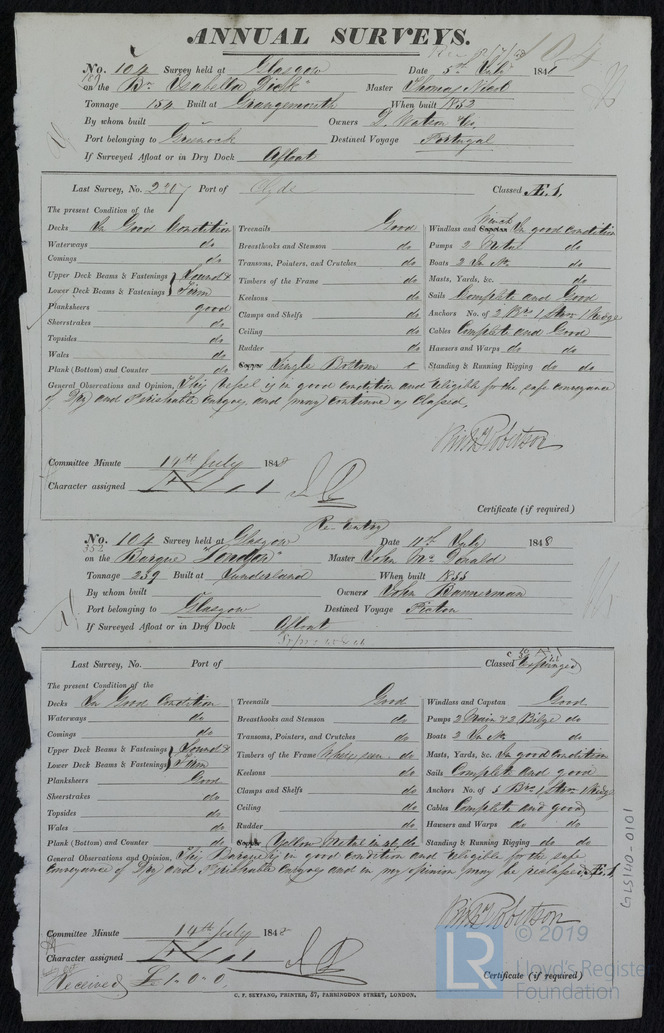 ANNUAL SURVEYS.
No. 104 Survey held at Glasgow Date 5th July 1848
on the Bn "Isabella Dick" Master Thomas Nicol
Tonnage 154 Built at Grangemouth When built 1832
By whom built Owners D. Watson Co.
Port belonging to Greenock Destined Voyage Portugal
If Surveyed Afloat or in Dry Dock Afloat
Last Survey, No. Port of Clyde Classed Æ.1,
The present Condition of the
Decks In Good Condition
Waterways do
Comings do
Upper Deck Beams & Fastenings Sound &
Lower Deck Beams & Fastenings Firm
Planksheers good
Sheerstrakes do
Topsides do
Wales do
Plank (Bottom) and Counter do
Treenails Good
Breasthooks and Stemson do
Transoms, Pointers, and Crutches do
Timbers of the Frame do
Keelsons do
Clamps and Shelfs do
Ceiling do
Rudder do
Copper Single Bottom
Windlass and Capstan Winch In good condition
Pumps 2 Metal do
Boats 2 In No. do
Masts, Yards, &c. do
Sails Complete and Good
Anchors No. of 2 Brs 1 Strm 1 Kedge
Cables Complete and Good
Hawsers and Warps do do
Standing & Running Rigging do do
General Observations and Opinion, This Vessel is in good condition and eligible for the safe conveyance
of Dry and Perishable Cargoes, and may continue as Classed,
Robertson
Committee Minute 14th July 1848
Character assigned
Certificate (if required)
Re-Entry
No. 104 Survey held at Glasgow Date 11th July 1848
352
on the Barque "London" Master John Mc Donald
Tonnage 239 Built at Sunderland When built 1835
By whom built Owners John Bannerman
Port belonging to Glasgow Destined Voyage Pictou
If Surveyed Afloat or in Dry Dock Afloat
Last Survey, No. Port of Classed Expunged
The present Condition of the
Decks In Good Condition
Waterways do
Comings do
Upper Deck Beams & Fastenings Sound &
Lower Deck Beams & Fastenings Firm
Planksheers Good
Sheerstrakes do
Topsides do
Wales do
Plank (Bottom) and Counter do
Treenails Good
Breasthooks and Stemson do
Transoms, Pointers, and Crutches do
Timbers of the Frame Where seen do
Keelsons do
Clamps and Shelfs do
Ceiling do
Rudder do
Copper Yellow Metal in do
Windlass and Capstan Good
Pumps 2 Main & 2 Bilge do
Boats 2 In No. do
Masts, Yards, &c. In good condition
Sails Complete and good
Anchors No. of 3 Brs 1 Strm 1 Kedge
Cables Complete and good
Hawsers and Warps do do
Standing & Running Rigging do do
General Observations and Opinion, This Barque is in good condition and eligible for the safe
conveyance of Dry and Perishable Cargoes and in my opinion may be reclassed Æ.1
Robertson
Committee Minute 14th July 1848
Character assigned
Received £1.0.0.
Certificate (if required)
C. F. SEYFANG, PRINTER, 57, FARRINGDON STREET, LONDON.
GLS140-0101
LR © 2019
Lloyd's Register
Foundation